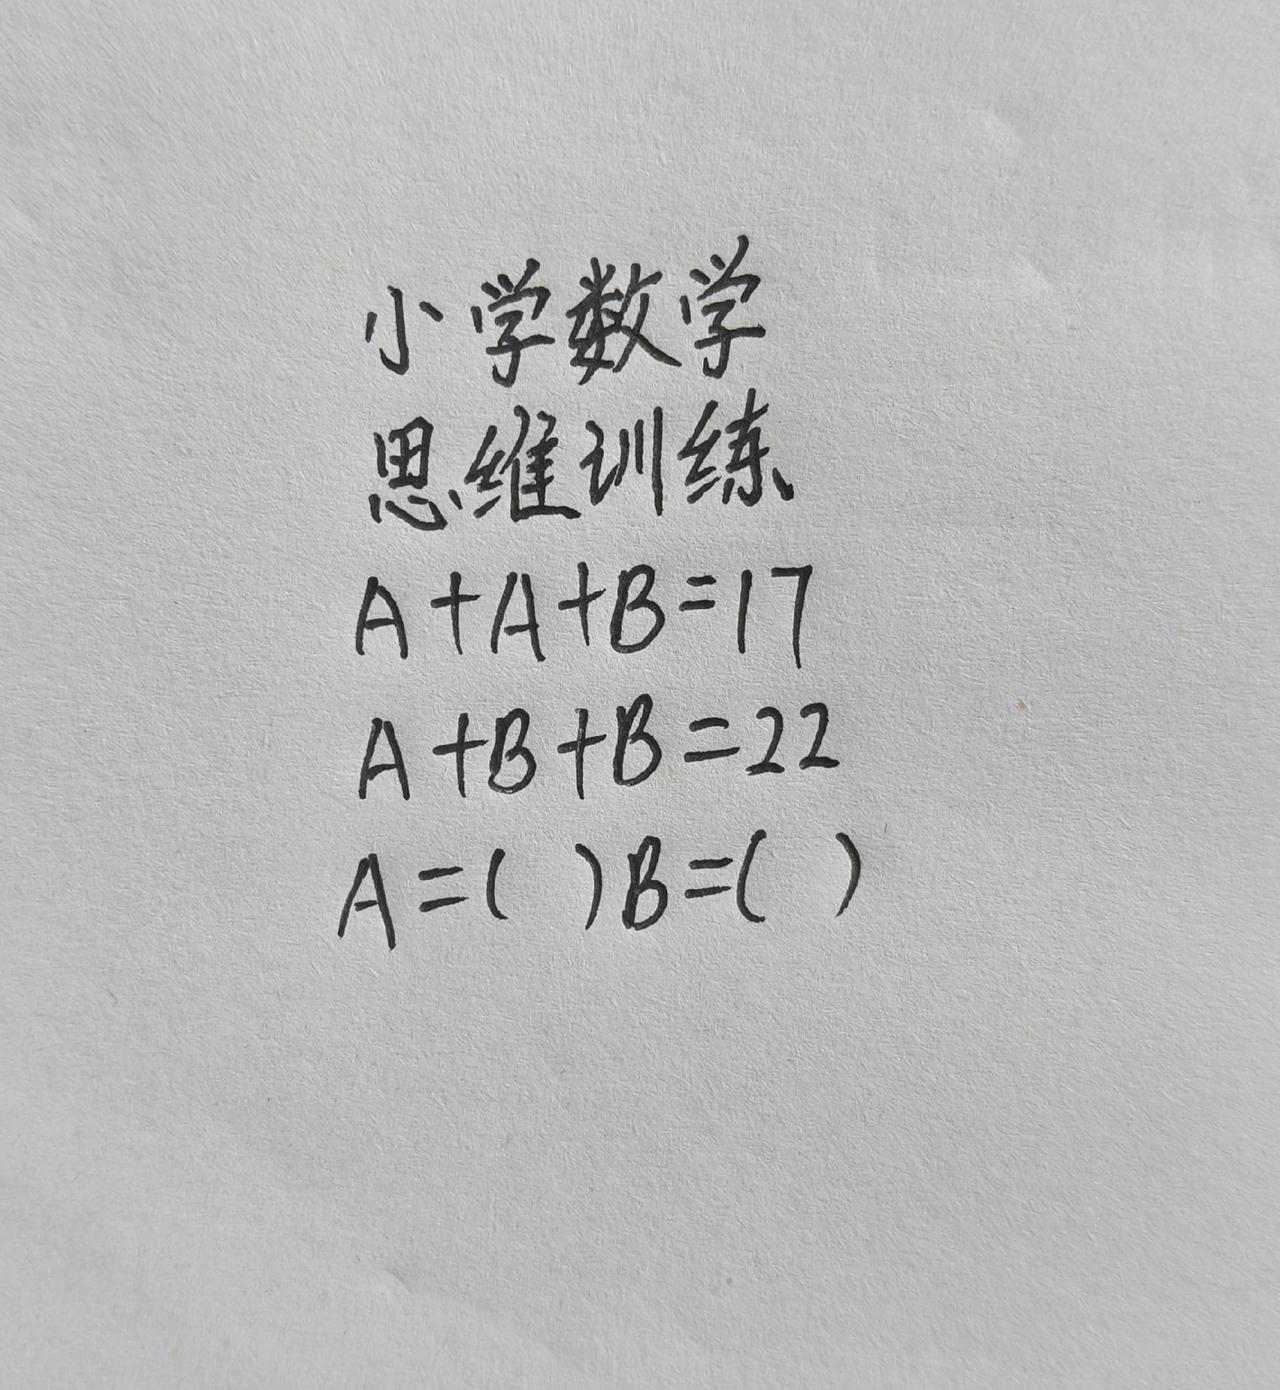 小学数学
思维训练
A+A+B=17
A+B+B=22
A=( )B=( )